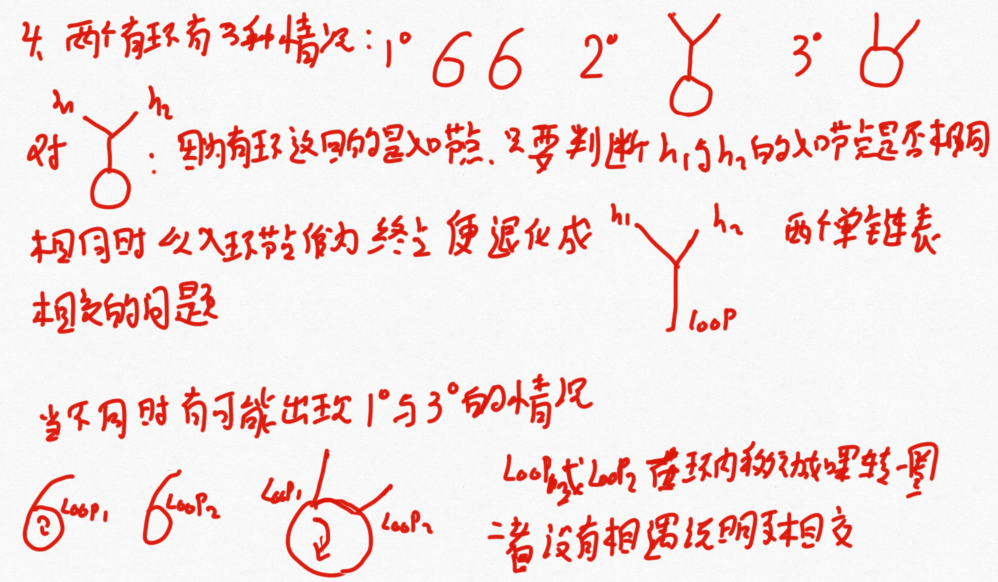 4、两个有环有3种情况：1° 6 6 2° 3°
h1 h2
对 ：因为有环返回的是入口节点，只要判断h1与h2的入口节点是否相同
相同时以入环节点作为终点便退化成 h1 h2 两个单链表
相交的问题 loop
当不同时有可能出现1°与3°的情况
Loop1 Loop2 Loop1 Loop2 Loop1或Loop2在环内移动如果转一圈
二者没有相遇说明不相交